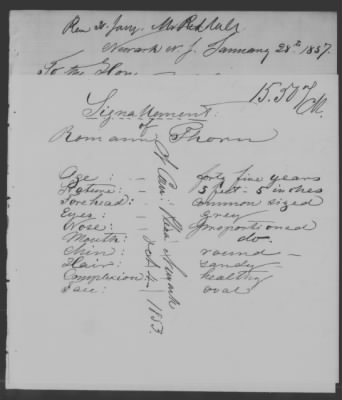 Newark N. J. January 28th 1857.
To the Hon
15.507
Signallement:
of
Romann Thorn
Age: forty five years
Stature: 5 feet - 5 inches
Forehead: common sized
Eyes: grey
Nose: proportioned
Mouth: do.
Chin: round
Hair: sandy
Complexion: healthy
Face: oval
Newark
Oct 4 1853